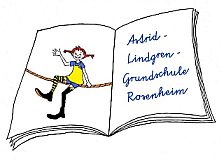 Astrid -
Lindgren -
Grundschule
Rosenheim